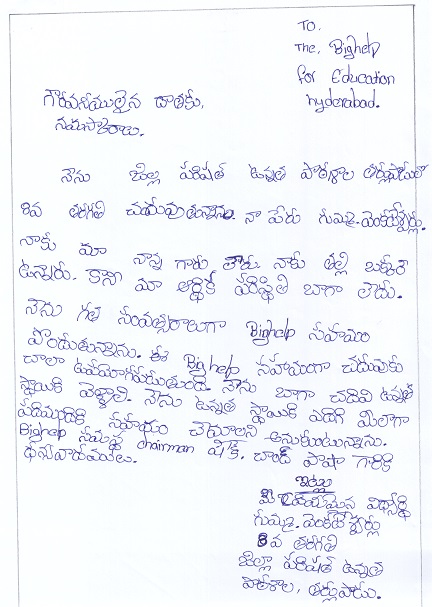 To.
The, Bighelp
for Education
hyderabad.
గౌరవనీయులైన దాతకు,
నమస్కారాలు.
నేను జిల్లా పరిషత్ ఉన్నత పాఠశాల తర్లుపాడులో
8వ తరగతి చదువుతున్నాను. నా పేరు గుమ్మా. వెంకటేశ్వర్లు.
నాకు మా నాన్న గారు లేరు. నాకు తల్లి ఒక్కరే
ఉన్నారు. కానీ మా ఆర్థిక పరిస్థితి బాగా లేదు.
నేను గత సంవత్సరాలుగా Bighelp సహాయం
పొందుతున్నాను. ఈ Bighelp సహాయంగా చదువుకు
చాలా ఉపయోగపడుతుంది. నేను బాగా చదివి ఉన్నత
స్థాయికి వెళ్ళాలి. నేను ఉన్నత స్థాయికి ఎదిగి మీలాగా
పదిమందికి సహాయం చేయాలని అనుకుంటున్నాను.
Bighelp సంస్థ chairman షేక్. చాంద్ పాషా గారికి
ధన్యవాదములు.
ఇట్లు
మీ విధేయమైన విద్యార్థి
గుమ్మా. వెంకటేశ్వర్లు
8వ తరగతి
జిల్లా పరిషత్ ఉన్నత
పాఠశాల, తర్లుపాడు.